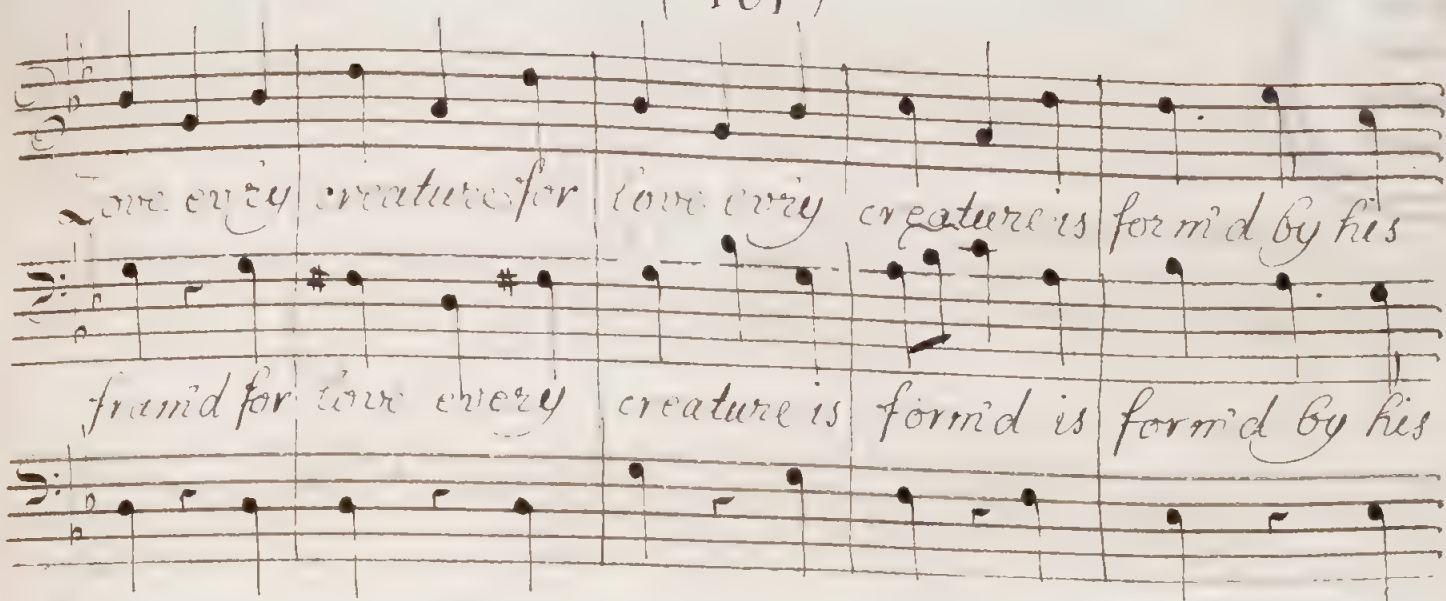 Love ev'ry creature for love ev'ry creature is form'd by his
fram'd for love every creature is form'd is form'd by his